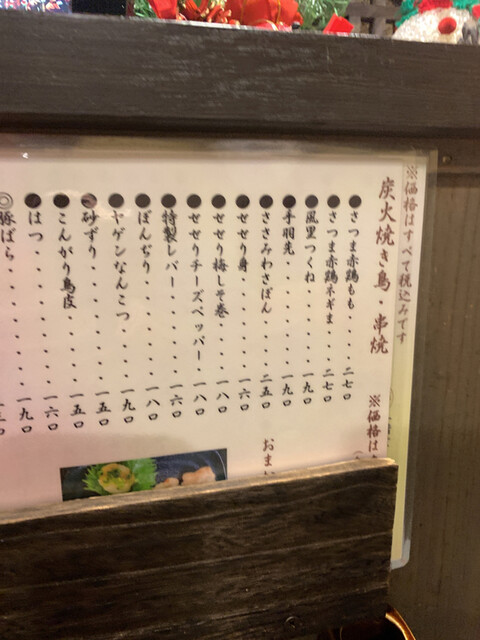 ※価格はすべて税込みです
炭火焼き鳥・串焼
※価格は
●さつま赤鶏もも・・・・二七〇
●さつま赤鶏ネギま・・・二七〇
●風里つくね・・・・・・一九〇
●手羽先・・・・・・・・一九〇
●ささみわさぽん・・・・二五〇
●せせり身・・・・・・・一六〇
●せせり梅しそ巻・・・・一八〇
●せせりチーズペッパー・一八〇
●特製レバー・・・・・・一六〇
●ぼんぢり・・・・・・・一八〇
●ヤゲンなんこつ・・・・一九〇
●砂ずり・・・・・・・・一五〇
●こんがり鳥皮・・・・・一五〇
●はつ・・・・・・・・・一六〇
◎豚ばら・・・・・・・・一九〇
おまか